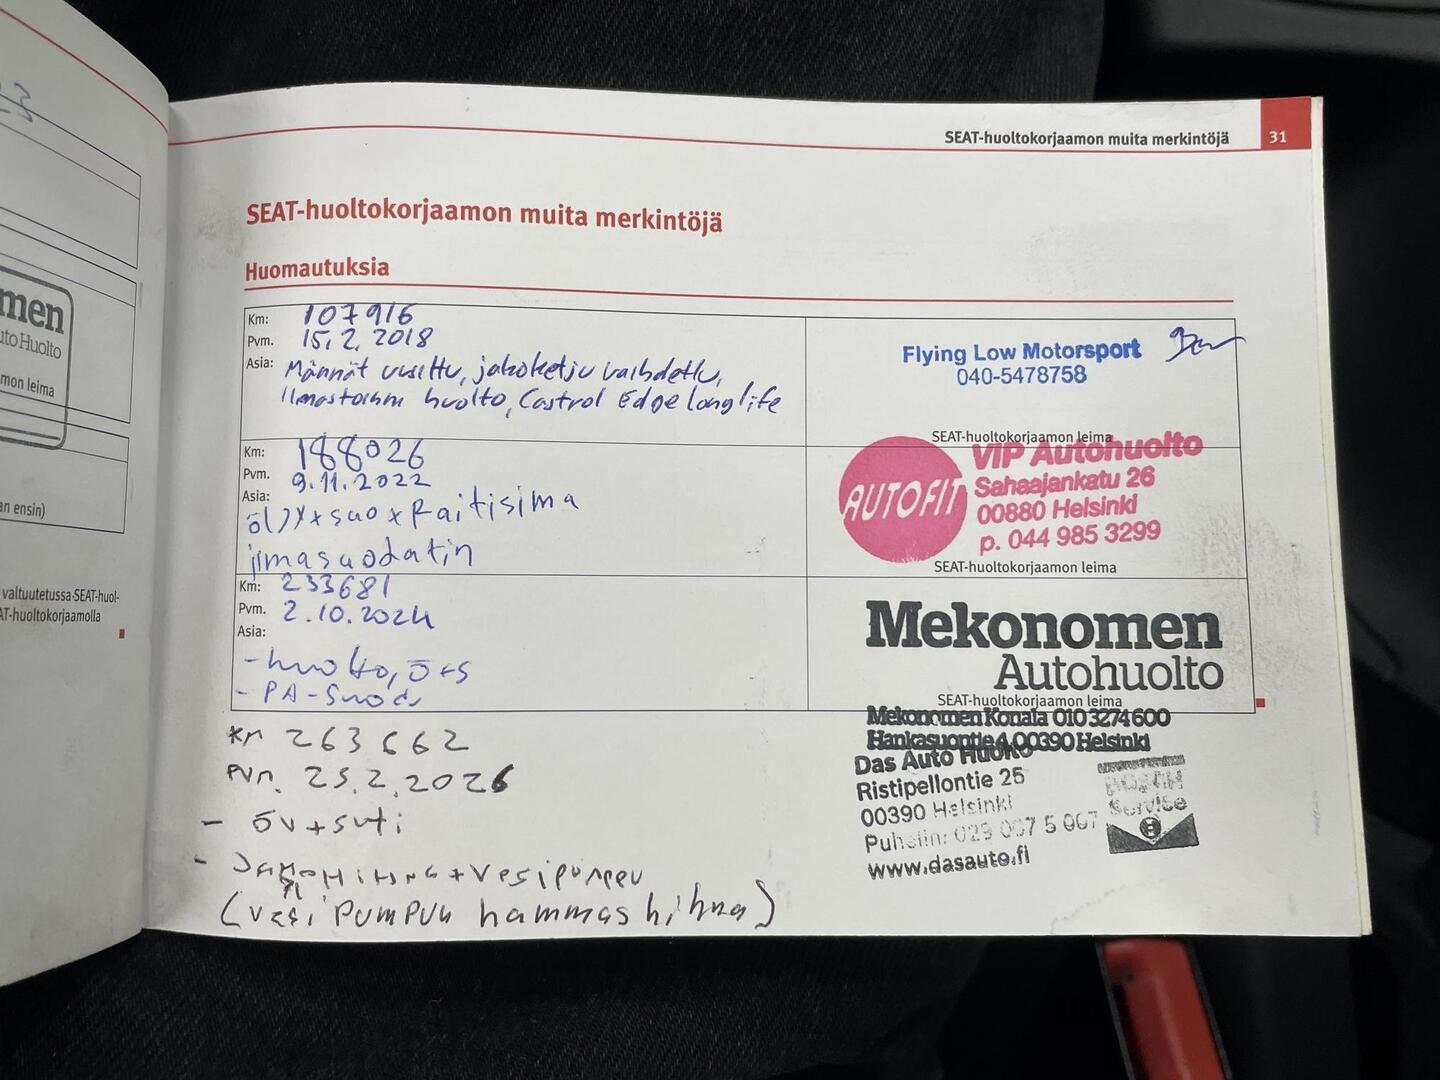 23
men
uto Huolto
mon leima
an ensin)
valtuutetussa SEAT-huol-
AT-huoltokorjaamolla
SEAT-huoltokorjaamon muita merkintöjä 31
SEAT-huoltokorjaamon muita merkintöjä
Huomautuksia
Km: 107916
Pvm. 15.2.2018
Asia: Männät uusittu, jakoketju vaihdettu,
ilmastoinnin huolto, Castrol Edge longlife
Flying Low Motorsport
040-5478758
SEAT-huoltokorjaamon leima
Km: 188026
Pvm. 9.11.2022
Asia: öljy + suo + Raitisilma
ilmasuodatin
AUTOFIT
VIP Autohuolto
Sahaajankatu 26
00880 Helsinki
p. 044 985 3299
SEAT-huoltokorjaamon leima
Km: 233681
Pvm. 2.10.2024
Asia:
- huolto, ö+s
- PA-Suod
Mekonomen
Autohuolto
SEAT-huoltokorjaamon leima
Mekonomen Konala 010 3274600
Hankasuontie 4 00390 Helsinki
Km 263662
Pvm. 25.2.2026
- öv + suti
- Jakohihna + vesipumppu
(vesipumpun hammashihna)
Das Auto Huolto
Ristipellontie 25
00390 Helsinki
Puhelin: 029 007 5 007
www.dasauto.fi
BOSCH
Service